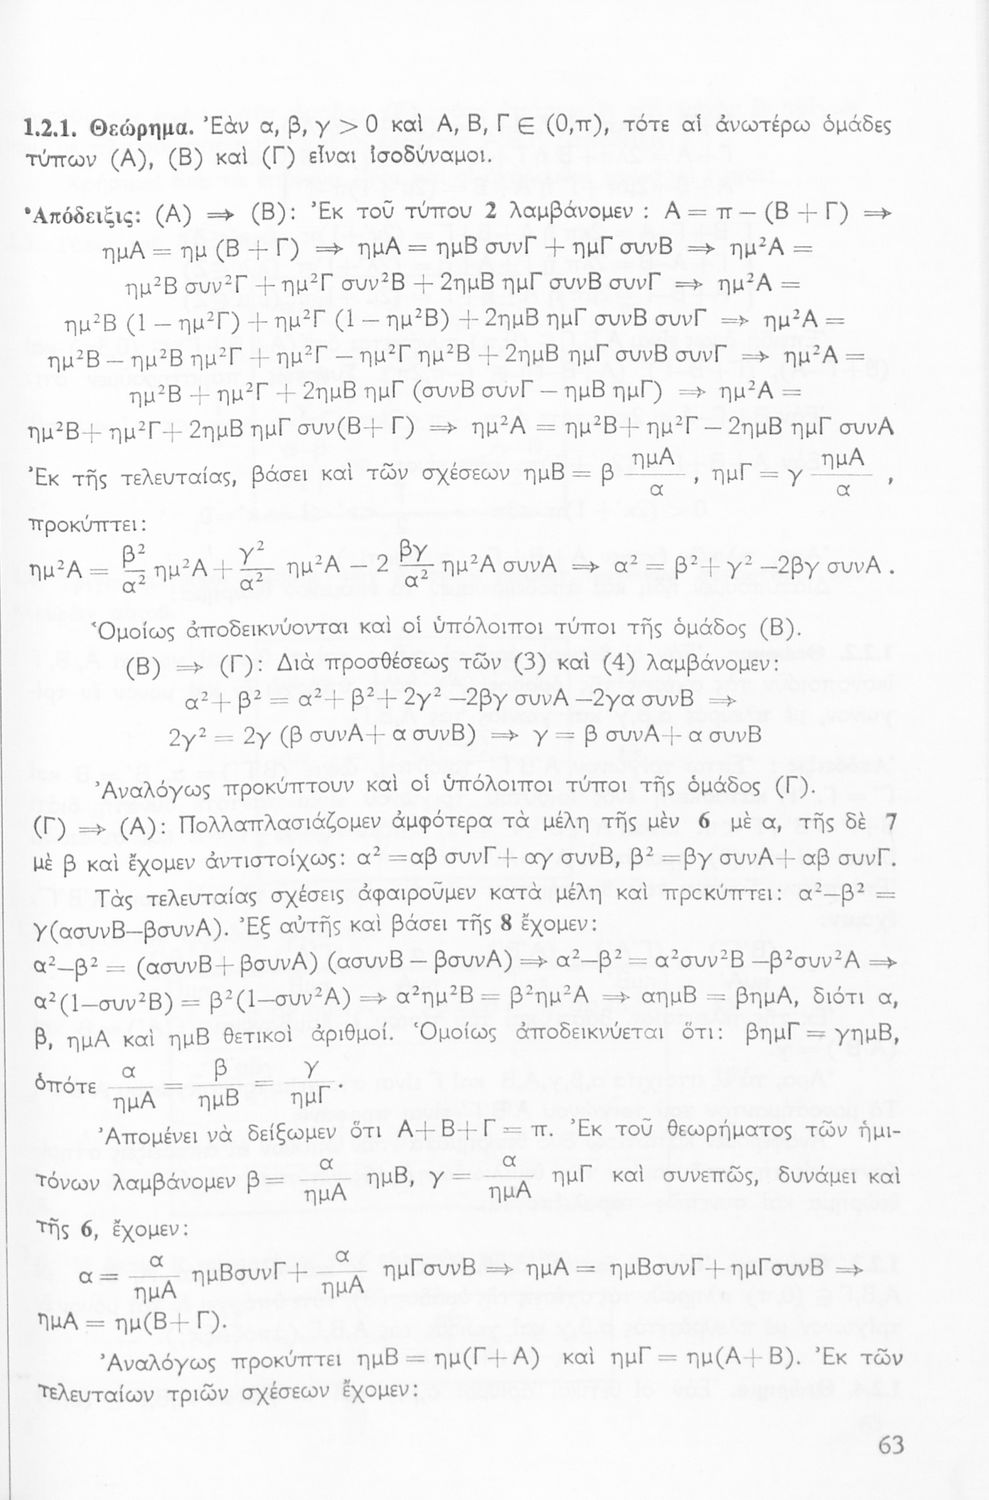 1.2.1. Θεώρημα. Ἐὰν α, β, γ > 0 καὶ Α, Β, Γ ∈ (0,π), τότε αἱ ἀνωτέρω ὁμάδες
τύπων (Α), (Β) καὶ (Γ) εἶναι ἰσοδύναμοι.
Ἀπόδειξις: (Α) ⇒ (Β): Ἐκ τοῦ τύπου 2 λαμβάνομεν : Α = π – (Β + Γ) ⇒
ημΑ = ημ (Β + Γ) ⇒ ημΑ = ημΒ συνΓ + ημΓ συνΒ ⇒ ημ²Α =
ημ²Β συν²Γ + ημ²Γ συν²Β + 2ημΒ ημΓ συνΒ συνΓ ⇒ ημ²Α =
ημ²Β (1 – ημ²Γ) + ημ²Γ (1 – ημ²Β) + 2ημΒ ημΓ συνΒ συνΓ ⇒ ημ²Α =
ημ²Β – ημ²Β ημ²Γ + ημ²Γ – ημ²Γ ημ²Β + 2ημΒ ημΓ συνΒ συνΓ ⇒ ημ²Α =
ημ²Β + ημ²Γ + 2ημΒ ημΓ (συνΒ συνΓ – ημΒ ημΓ) ⇒ ημ²Α =
ημ²Β + ημ²Γ + 2ημΒ ημΓ συν(Β + Γ) ⇒ ημ²Α = ημ²Β + ημ²Γ – 2ημΒ ημΓ συνΑ
Ἐκ τῆς τελευταίας, βάσει καὶ τῶν σχέσεων ημΒ = β ημΑ/α , ημΓ = γ ημΑ/α ,
προκύπτει:
ημ²Α = β²/α² ημ²Α + γ²/α² ημ²Α – 2 βγ/α² ημ²Α συνΑ ⇒ α² = β² + γ² –2βγ συνΑ .
Ὁμοίως ἀποδεικνύονται καὶ οἱ ὑπόλοιποι τύποι τῆς ὁμάδος (Β).
(Β) ⇒ (Γ): Διὰ προσθέσεως τῶν (3) καὶ (4) λαμβάνομεν:
α² + β² = α² + β² + 2γ² –2βγ συνΑ –2γα συνΒ ⇒
2γ² = 2γ (β συνΑ + α συνΒ) ⇒ γ = β συνΑ + α συνΒ
Ἀναλόγως προκύπτουν καὶ οἱ ὑπόλοιποι τύποι τῆς ὁμάδος (Γ).
(Γ) ⇒ (Α): Πολλαπλασιάζομεν ἀμφότερα τὰ μέλη τῆς μὲν 6 μὲ α, τῆς δὲ 7
μὲ β καὶ ἔχομεν ἀντιστοίχως: α² =αβ συνΓ + αγ συνΒ, β² =βγ συνΑ + αβ συνΓ.
Τὰς τελευταίας σχέσεις ἀφαιροῦμεν κατὰ μέλη καὶ πρcκύπτει: α²–β² =
γ(ασυνΒ–βσυνΑ). Ἐξ αὐτῆς καὶ βάσει τῆς 8 ἔχομεν:
α²–β² = (ασυνΒ + βσυνΑ) (ασυνΒ – βσυνΑ) ⇒ α²–β² = α²συν²Β –β²συν²Α ⇒
α²(1–συν²Β) = β²(1–συν²Α) ⇒ α²ημ²Β = β²ημ²Α ⇒ αημΒ = βημΑ, διότι α,
β, ημΑ καὶ ημΒ θετικοὶ ἀριθμοί. Ὁμοίως ἀποδεικνύεται ὅτι: βημΓ = γημΒ,
ὁπότε α/ημΑ = β/ημΒ = γ/ημΓ .
Ἀπομένει νὰ δείξωμεν ὅτι Α + Β + Γ = π. Ἐκ τοῦ θεωρήματος τῶν ἡμι-
τόνων λαμβάνομεν β = α/ημΑ ημΒ, γ = α/ημΑ ημΓ καὶ συνεπῶς, δυνάμει καὶ
τῆς 6, ἔχομεν:
α = α/ημΑ ημΒσυνΓ + α/ημΑ ημΓσυνΒ ⇒ ημΑ = ημΒσυνΓ + ημΓσυνΒ ⇒
ημΑ = ημ(Β + Γ).
Ἀναλόγως προκύπτει ημΒ = ημ(Γ + Α) καὶ ημΓ = ημ(Α + Β). Ἐκ τῶν
τελευταίων τριῶν σχέσεων ἔχομεν:
63